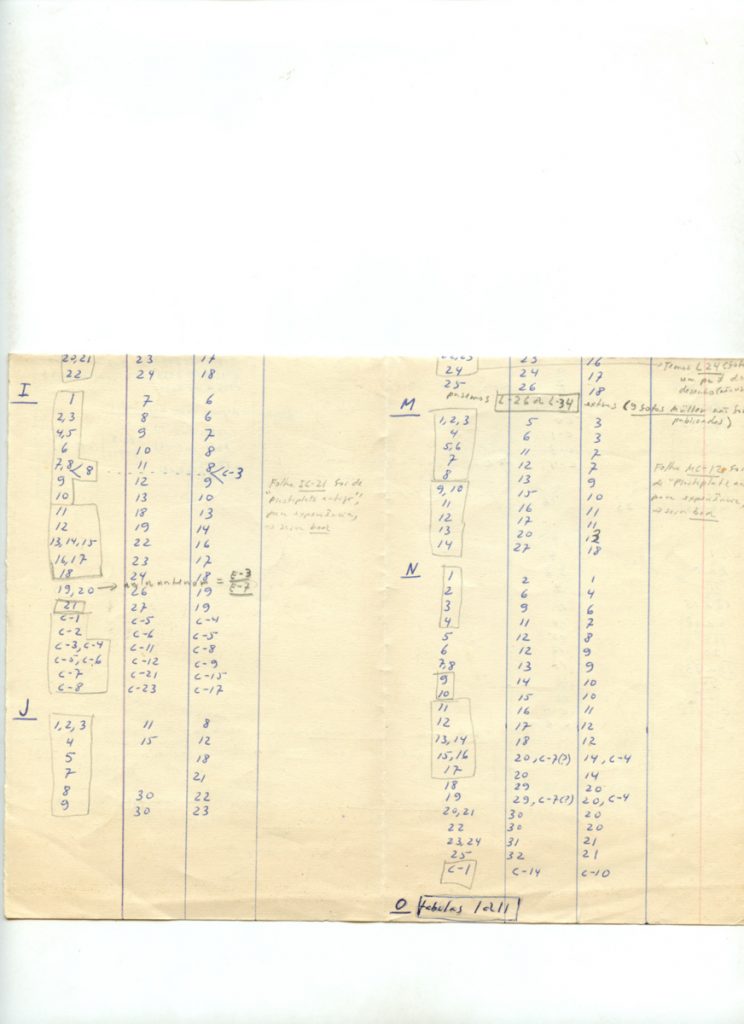 20,21 23 17
22 24 18
I
1 7 6
2,3 8 6
4,5 9 7
6 10 8
7,8 < 8 11 8 < c-3
9 12 9
10 13 10
11 18 13
12 19 14
13,14,15 22 16
16,17 23 17
18 24 18
19,20 → 26 19
21 27 19
c-1 c-5 c-4
c-2 c-6 c-5
c-3, c-4 c-11 c-8
c-5, c-6 c-12 c-9
c-7 c-21 c-15
c-8 c-23 c-17
Folha IC-21 Sai de
para experiência,
bad
J
1,2,3 11 8
4 15 12
5 18
7 21
8 30 22
9 30 23
22,23 23 16
24 24 17
25 26 18
pusemos L-26 a L-34 extras (9 fotos Müller não
publicadas)
Temos L24
M
1,2,3 5 3
4 6 3
5,6 11 7
7 12 7
8 13 9
9,10 15 10
11 16 11
12 17 11
13 20 13
14 27 18
Folha MC-12
para experiência
bad
N
1 2 1
2 6 4
3 9 6
4 11 7
5 12 8
6 12 9
7,8 13 9
9 14 10
10 15 10
11 16 11
12 17 12
13,14 18 12
15,16 20, c-7(?) 14, c-4
17 20 14
18 29 20
19 29, c-7(?) 20, c-4
20,21 30 20
22 30 20
23,24 31 21
25 32 21
c-1 c-14 c-10
O tabelas 1 a 11